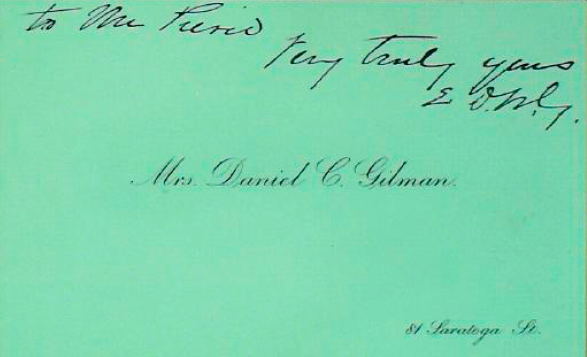 to Mr Peirce
Very truly yours
E. D. W. G.
Mrs. Daniel C. Gilman.
81 Saratoga St.